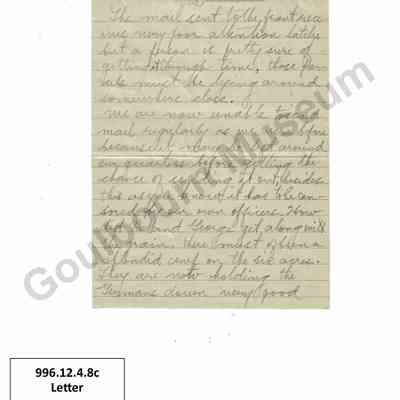 The mail sent to the front rece
ives very poor attention lately
but a person is pretty sure of
getting it through time, those Par-
cels must be lying around
somewhere close.
We are now unable to send
mail regularly as we use before
because it remains around
our quarters before getting the
chance of sending it out, besides
this as you know it has to be cen-
sored by our own officers. How
did and George get along with
the grain. There must of been a
splendid crop on the six acres.
They are now holding the
Germans down very good
Goulbourn Museum
996.12.4.8c
Letter